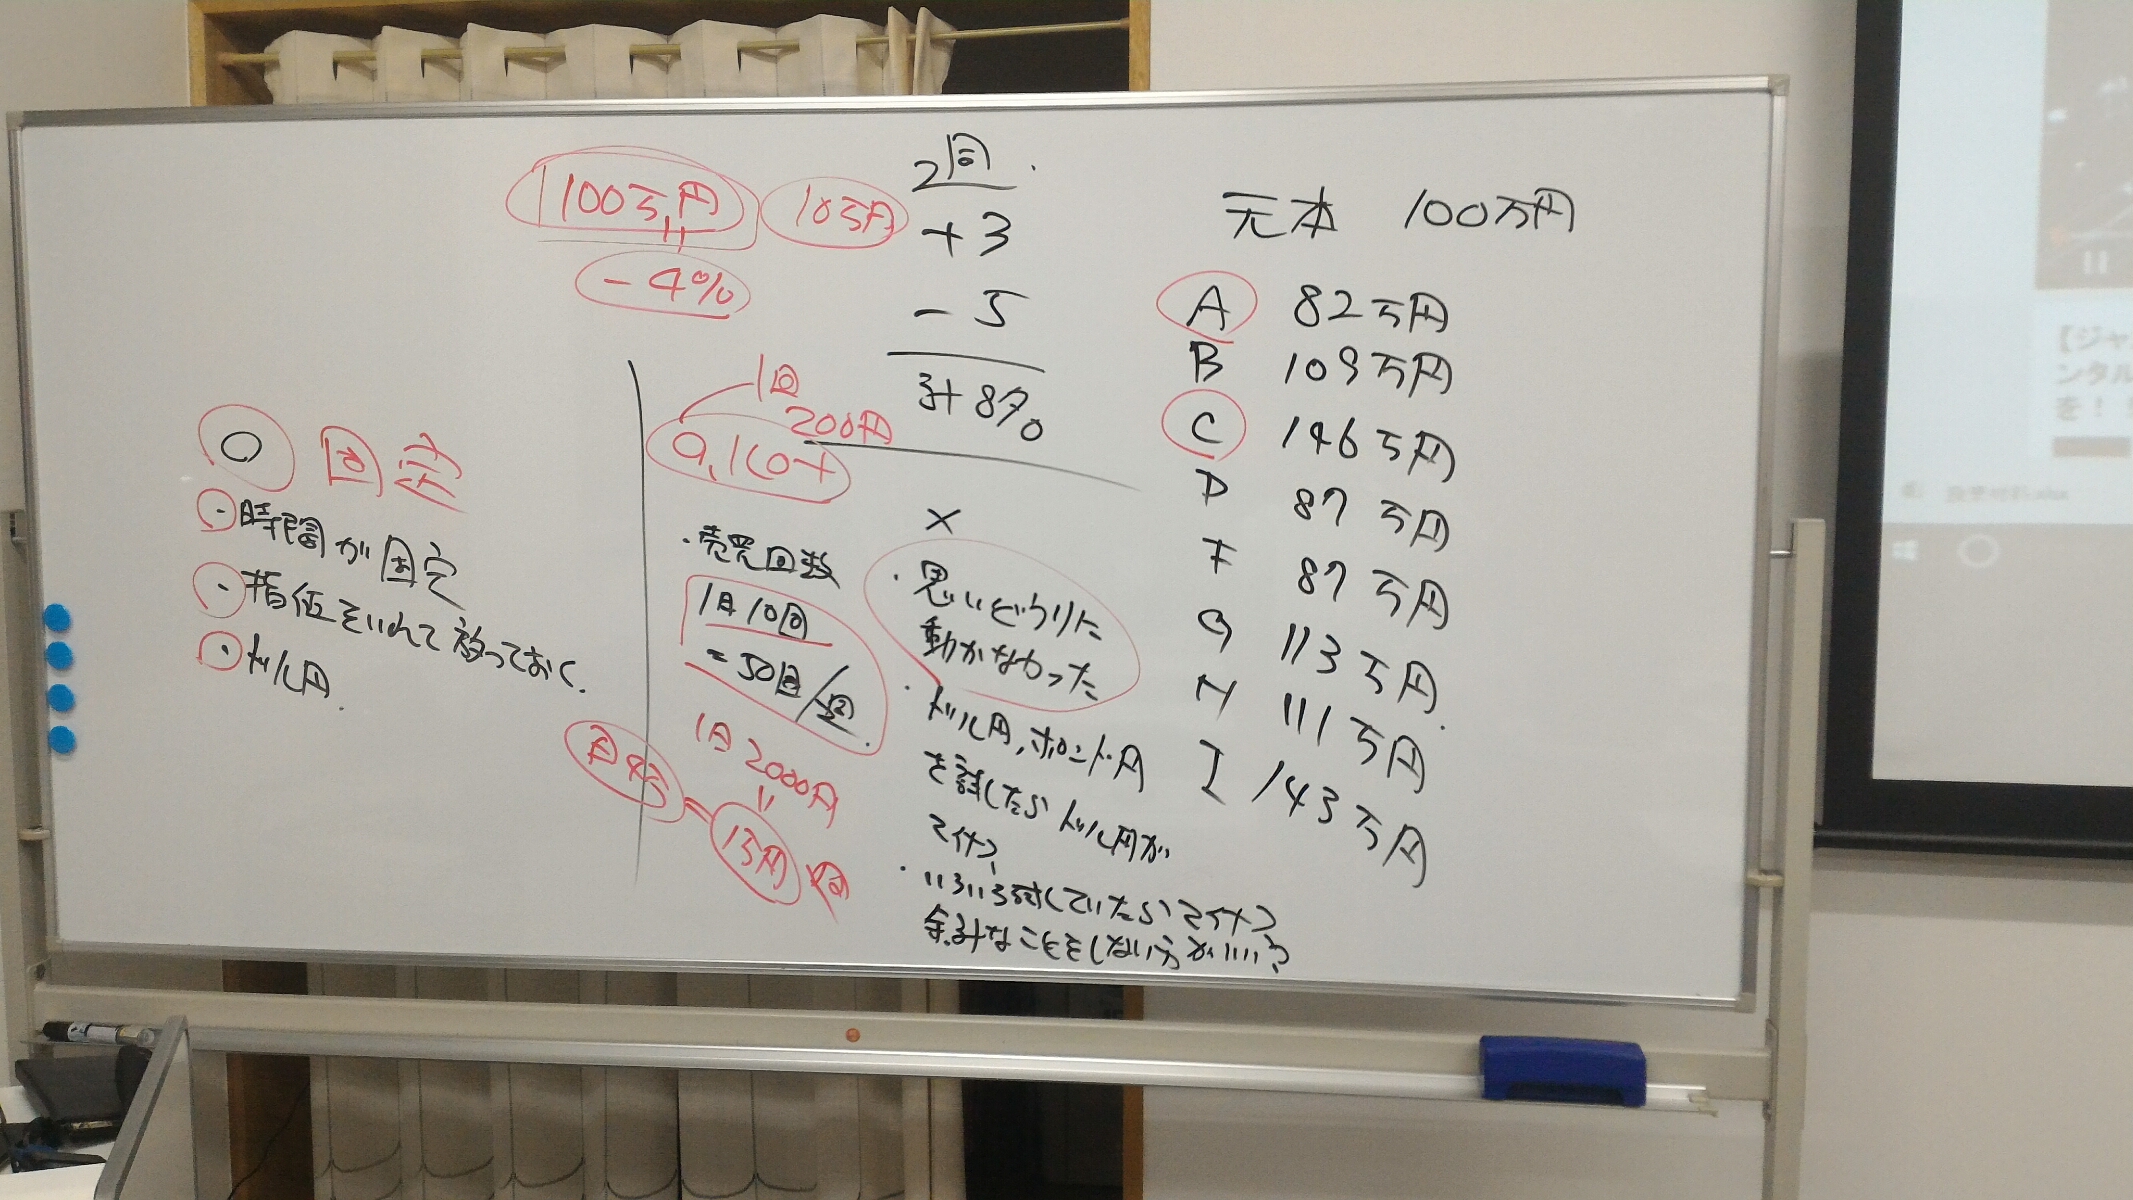 2回
100万円
10万円
-4%
+3
-5
計8%
元本 100万円
A 82万円
B 109万円
C 146万円
D 87万円
F 87万円
G 113万円
H 111万円
I 143万円
○ 固定
・時間が固定
・指値をいれて放っておく.
・ドル円.
1回
200円
0,1ロット
・売買回数
1日10回
=50回/週
1日2000円
×
・思いどうりに
動かなかった
・ドル円,ポンド円
を試したらドル円が
マイナス
・いろいろ試していたらマイナス
余計なことをしない方がいい?
【ジャ
ンタル
を!